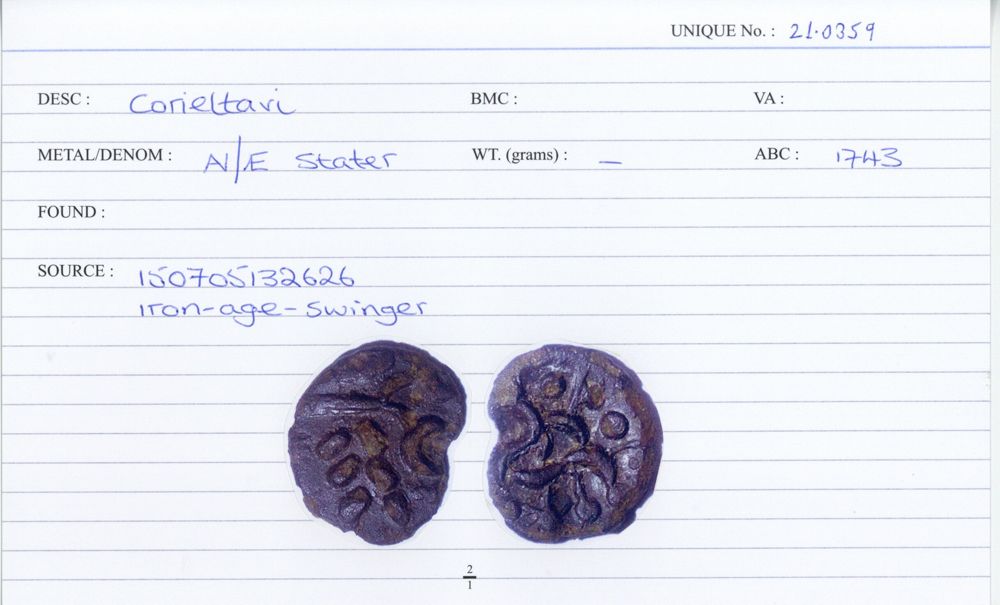 UNIQUE No. : 21.0359
DESC : Corieltavi BMC : VA :
METAL/DENOM : A/Æ Stater WT. (grams) : — ABC : 1743
FOUND :
SOURCE : 150705132626
Iron-age-swinger
2
1